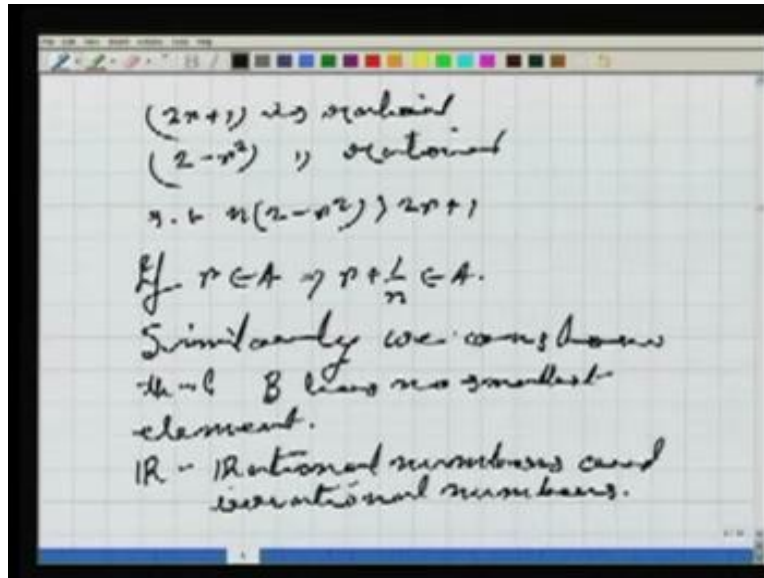 (2r+1) is rational
(2-r²) " rational
s.t n(2-r²) > 2r+1
If r ∈ A ⇒ r + 1/n ∈ A.
Similarly we can show
that B has no smallest
element.
IR - Rational numbers and
irrational numbers.